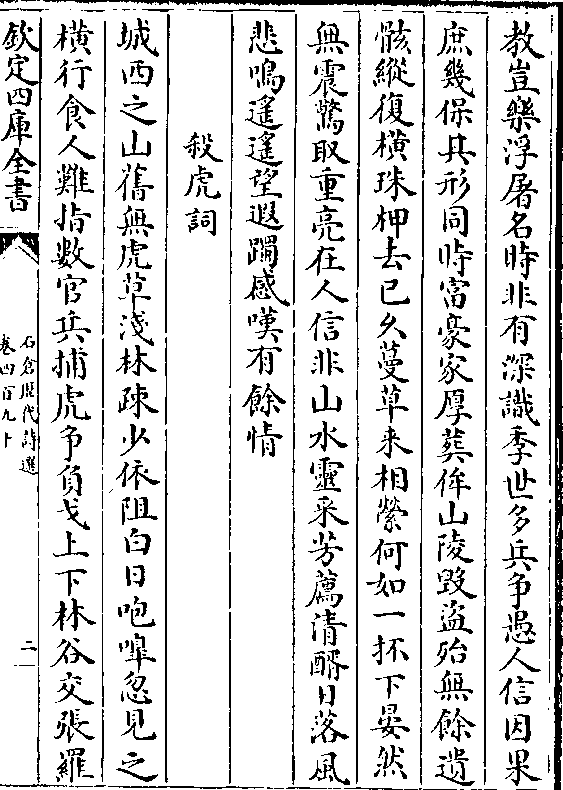 教豈樂浮屠名時非有深識季世多兵爭愚人信因果
庶幾保其形同時富豪家厚葬侔山陵毀盜殆無餘遺
骸縱復橫珠柙去已久蔓草来相縈何如一抔下晏然
無震驚取重亮在人信非山水靈采芳薦清醑日落風
悲鳴遙遙望遐躅感嘆有餘情
殺虎詞
城西之山舊無虎草淺林疎少依阻白日咆嘷忽見之
橫行食人難指數官兵捕虎爭負戈上下林谷交張羅
欽定四庫全書
石倉歷代詩選
卷四百九十
二